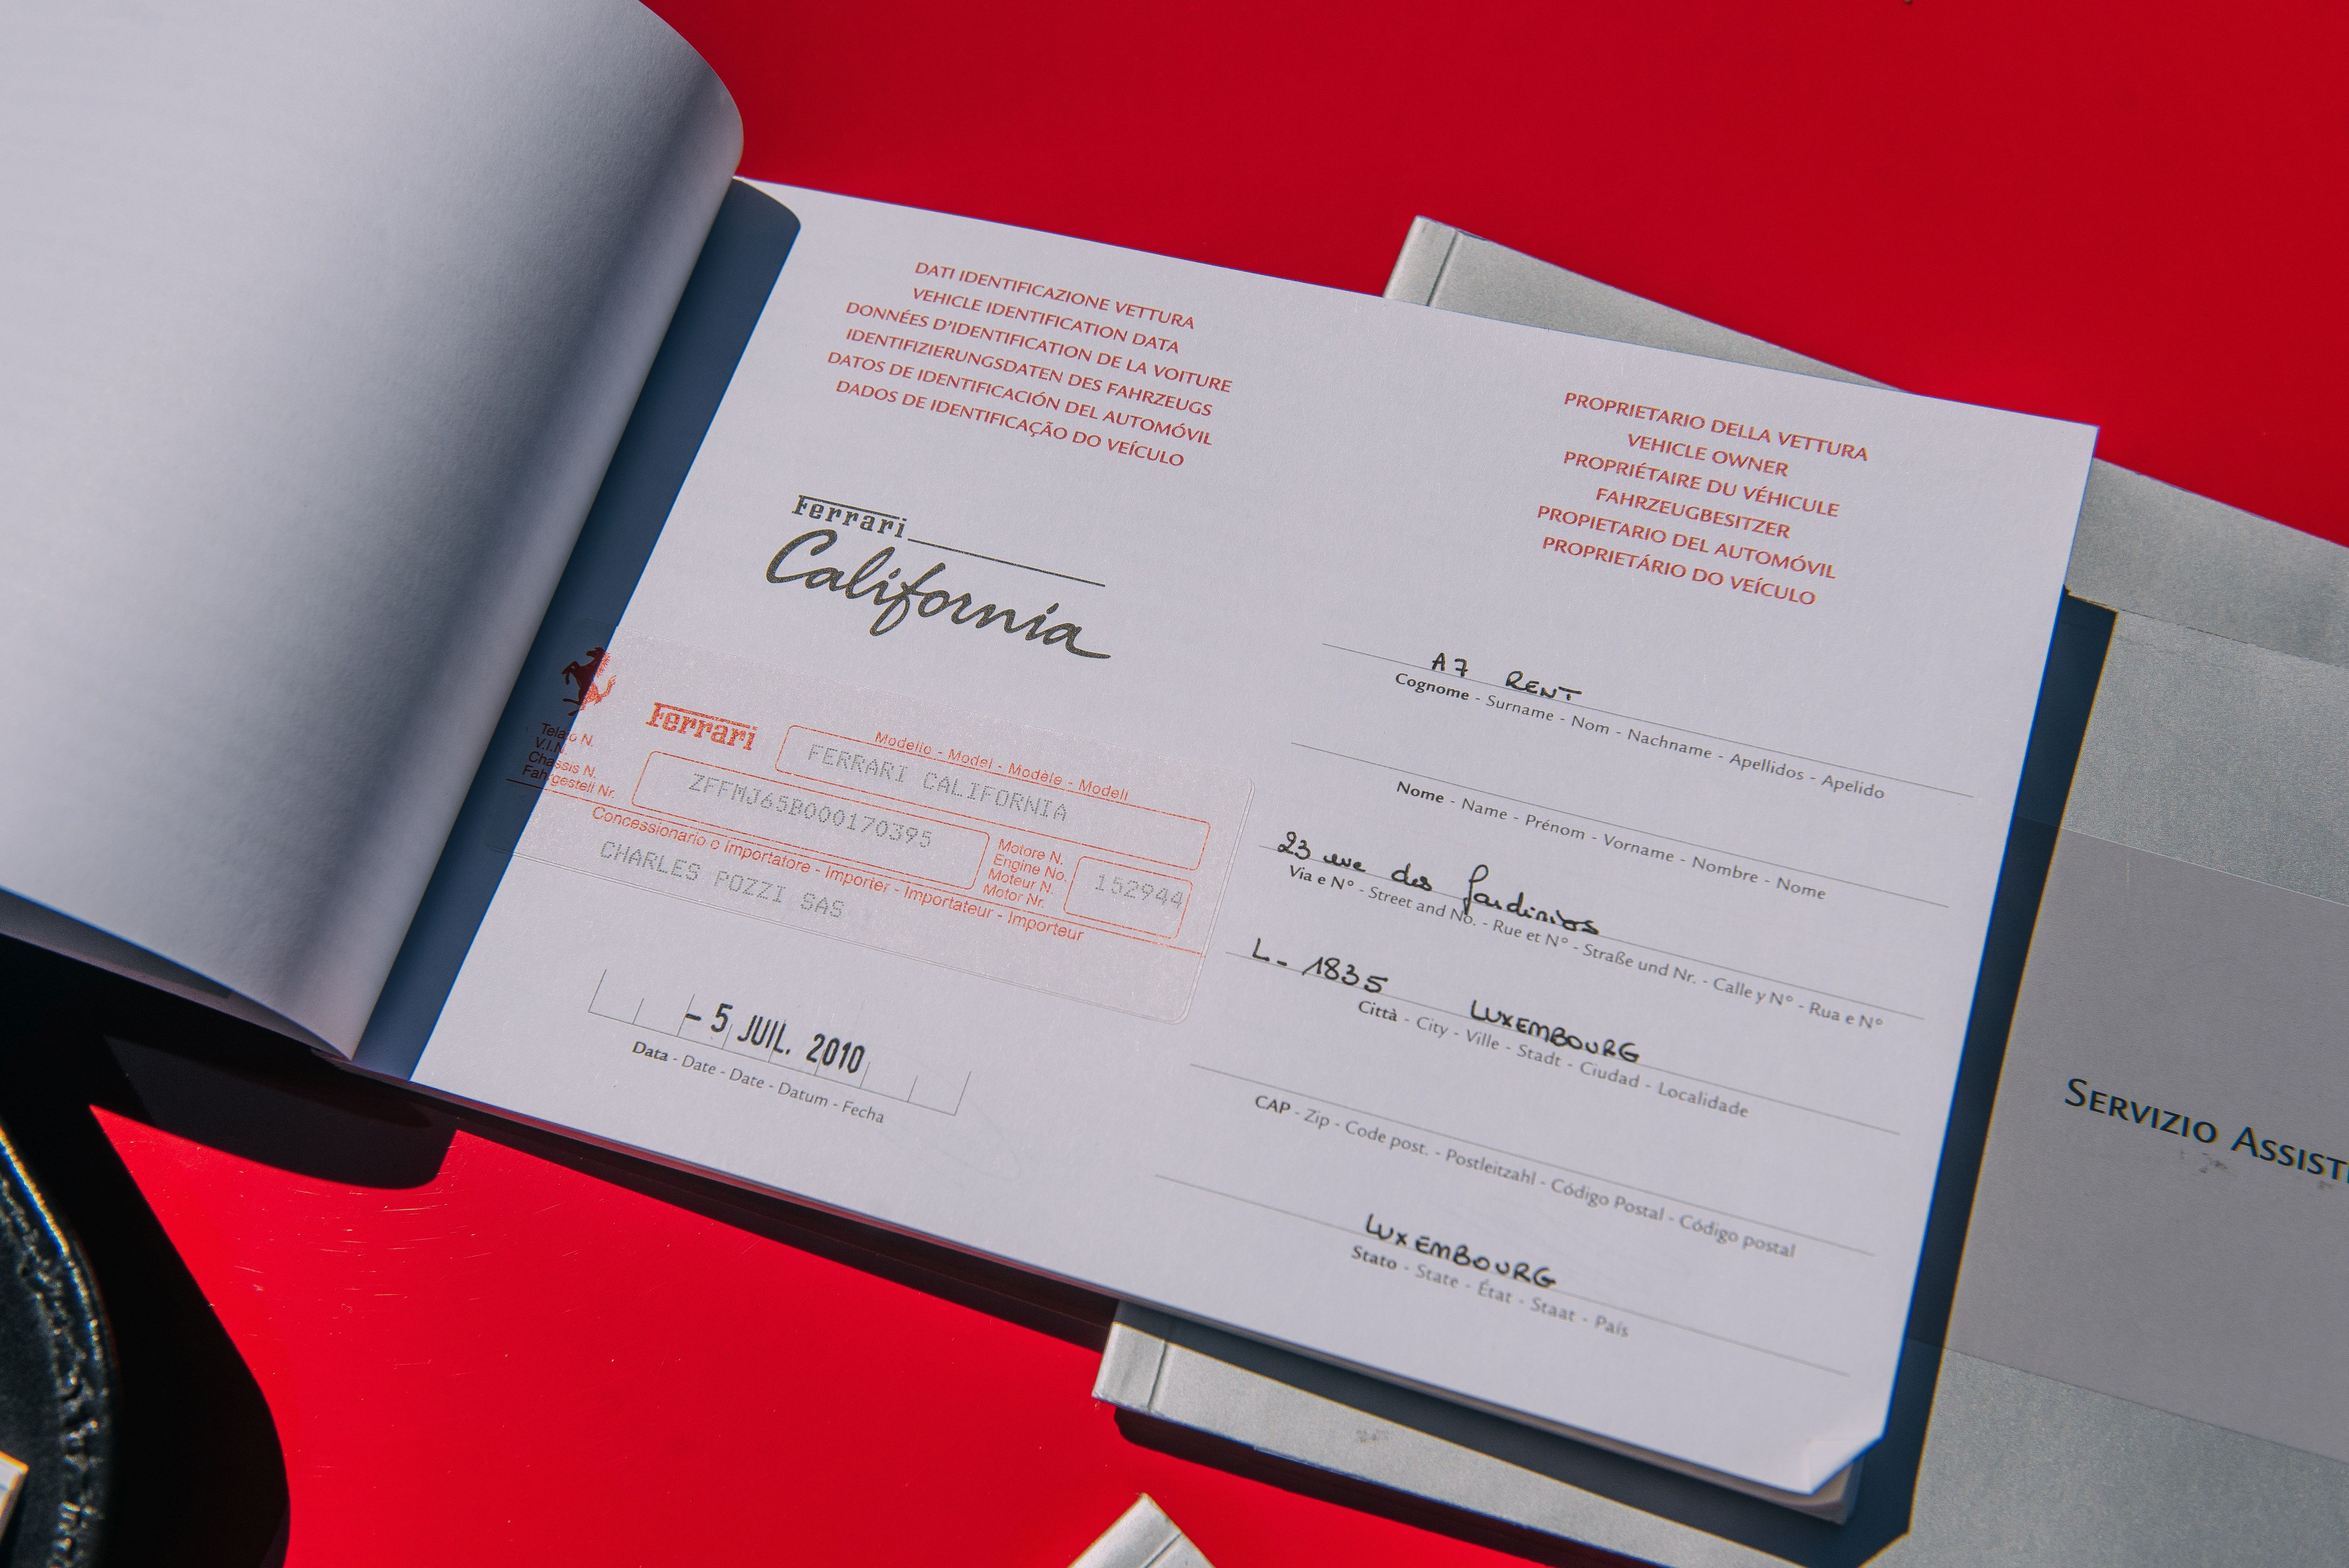 DATI IDENTIFICAZIONE VETTURA
VEHICLE IDENTIFICATION DATA
DONNÉES D'IDENTIFICATION DE LA VOITURE
IDENTIFIZIERUNGSDATEN DES FAHRZEUGS
DATOS DE IDENTIFICACIÓN DEL AUTOMÓVIL
DADOS DE IDENTIFICAÇÃO DO VEÍCULO
Ferrari
California
Ferrari
Modello - Model - Modèle - Modell
FERRARI CALIFORNIA
Telaio N.
V.I.N.
Chassis N.
Fahrgestell Nr.
ZFFMJ65B000170395
Motore N.
Engine No.
Moteur N.
Motor Nr.
152944
Concessionario o Importatore - Importer - Importateur - Importeur
CHARLES POZZI SAS
- 5 JUIL. 2010
Data - Date - Date - Datum - Fecha
PROPRIETARIO DELLA VETTURA
VEHICLE OWNER
PROPRIÉTAIRE DU VÉHICULE
FAHRZEUGBESITZER
PROPIETARIO DEL AUTOMÓVIL
PROPRIETÁRIO DO VEÍCULO
A7 RENT
Cognome - Surname - Nom - Nachname - Apellidos - Apelido
Nome - Name - Prénom - Vorname - Nombre - Nome
23 rue des
Via e N° - Street and No. - Rue et N° - Straße und Nr. - Calle y N° - Rua e N°
L - 1835 LUXEMBOURG
Città - City - Ville - Stadt - Ciudad - Localidade
CAP - Zip - Code post. - Postleitzahl - Código Postal - Código postal
LUXEMBOURG
Stato - State - État - Staat - País
SERVIZIO ASSIST